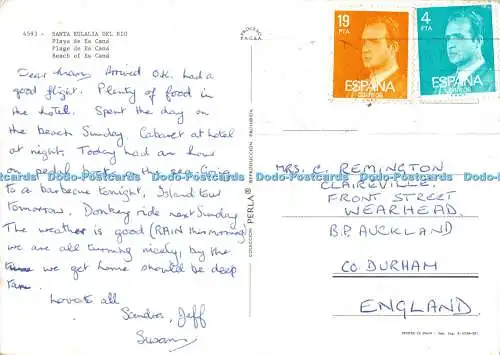 4593 - SANTA EULALIA DEL RIO
Playa de Es Caná
Plage de Es Caná
Beach of Es Caná
Dear Mam, Arrived O.K. had a
good flight. Plenty of food in
the hotel. Spent the day on
the beach Sunday. Cabaret at hotel
at night. Today had an hour
on pedal boats on the sea. Going
to a barbecue tonight, Island tour
tomorrow. Donkey ride next Sunday
The weather is good (RAIN this morning)
we are all turning nicely, by the
time we get home should be deep
tan.
Love to all
Sandra, Jeff
Susan
COLECCION PERLA® REPRODUCCION PROHIBIDA
19
PTA
ESPAÑA
CORREOS
4
PTA
ESPAÑA
CORREOS
MRS. C. REMINGTON
CLAIREVILLE,
FRONT STREET
WEARHEAD.
B.P. AUCKLAND
CO. DURHAM
ENGLAND.
Dodo-Postcards Dodo-Postcards Dodo-Postcards Dodo-Postcards